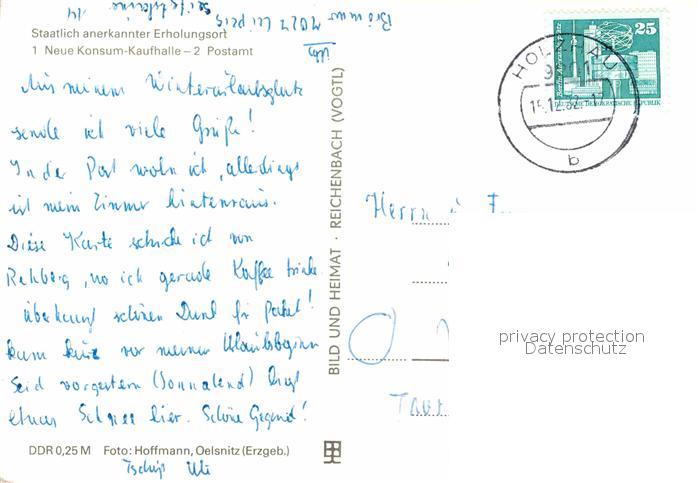 Staatlich anerkannter Erholungsort
1 Neue Konsum-Kaufhalle – 2 Postamt
Aus meinem
sende ich viele Grüße!
In der Post wohn ich, allerdings
ist mein Zimmer hintenraus.
Diese Karte schicke ich von
Rehberg, wo ich gerade Kaffee trinke
überhaupt schönen Dank für Paket!
kam kurz vor meinem Urlaubsbeginn
Seid vorgestern (Sonnabend) liegt
etwas Schnee hier. Schöne Gegend!
Tschüß Ute
DDR 0,25 M Foto: Hoffmann, Oelsnitz (Erzgeb.)
BILD UND HEIMAT · REICHENBACH (VOGTL)
7027 Leipzig
14
25
DEUTSCHE DEMOKRATISCHE REPUBLIK
HOLZHAU
b
Herrn
privacy protection
Datenschutz